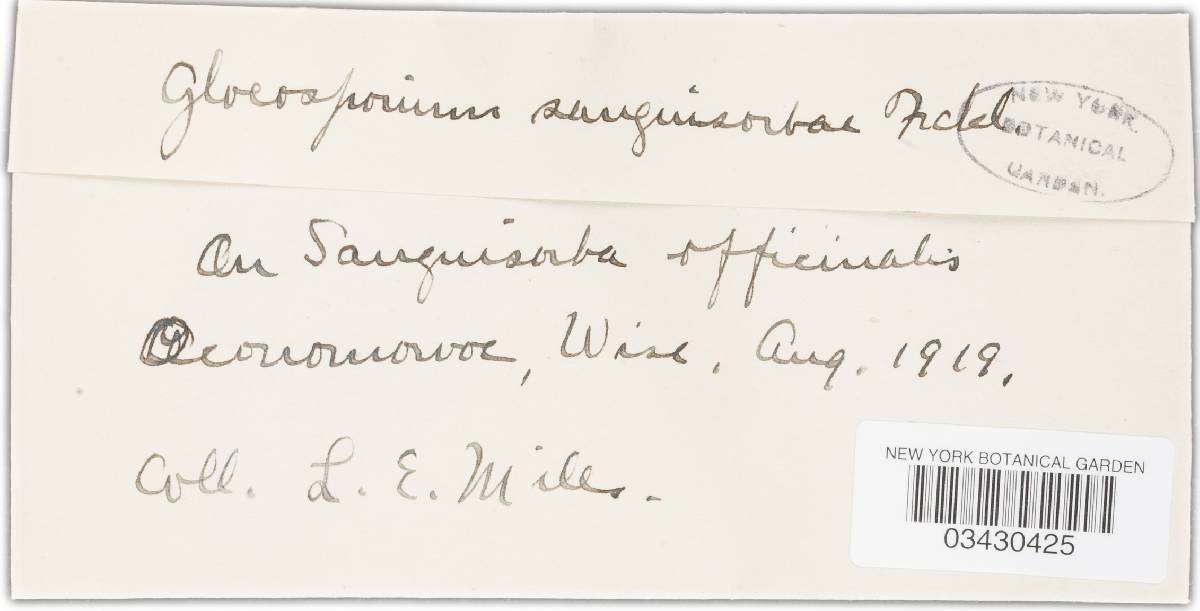 Gloeosporium sanguisorbae Fckl.
NEW YORK
BOTANICAL
GARDEN.
On Sanguisorba officinalis
Oconomowoc, Wisc. Aug. 1919.
Coll. L. E. Miles.
NEW YORK BOTANICAL GARDEN
03430425